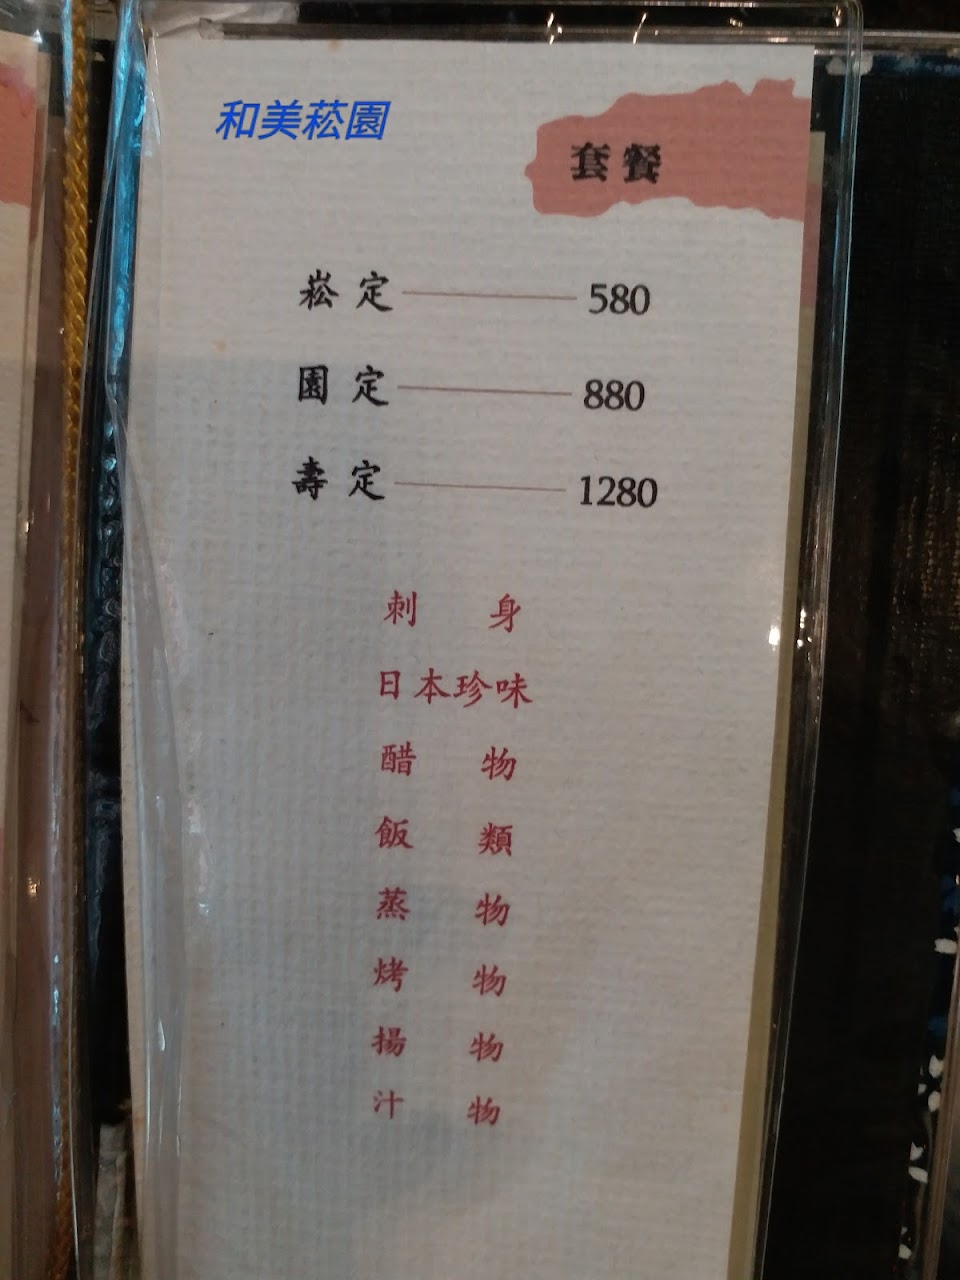 和美菘園
套餐
菘定 580
園定 880
壽定 1280
刺身
日本珍味
醋物
飯類
蒸物
烤物
揚物
汁物